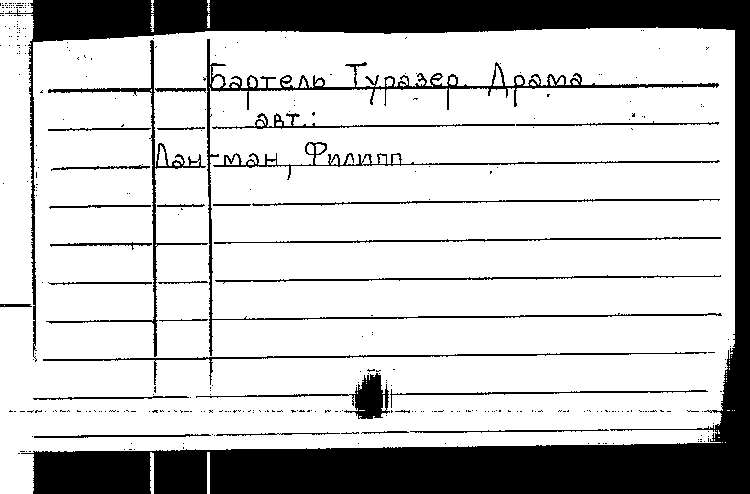 Бартель Туразер. Драма.
авт.:
Лангман, Филипп.